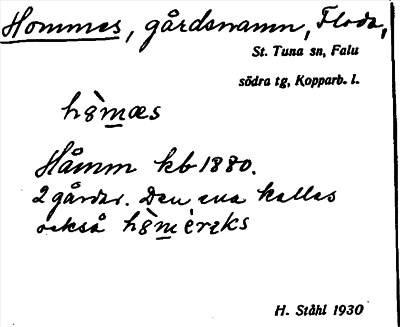 Hommes, gårdsnamn, Floda,
St. Tuna sn, Falu
södra tg, Kopparb. l.
hòmæs
Håmm kb 1880.
2 gårdar. Den ena kallas
också hòmèrıks
H. Ståhl 1930